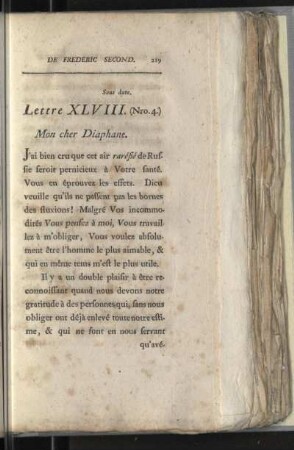 DE FREDERIC SECOND. 219
Sans date.
Lettre XLVIII. (Nro. 4.)
Mon cher Diaphane.
J'ai bien cru que cet air raréfié de Rus-
sie seroit pernicieux à Votre santé.
Vous en éprouvez les effets. Dieu
veuille qu'ils ne passent pas les bornes
des fluxions! Malgré Vos incommo-
dités Vous pensez à moi, Vous travail-
lez à m'obliger, Vous voulez absolu-
ment être l'homme le plus aimable, &
qui en même tems m'est le plus utile.
Il y a un double plaisir à être re-
connoissant quand nous devons notre
gratitude à des personnes qui, sans nous
obliger ont déjà enlevé toute notre esti-
me, & qui ne font en nous servant
qu'avé-